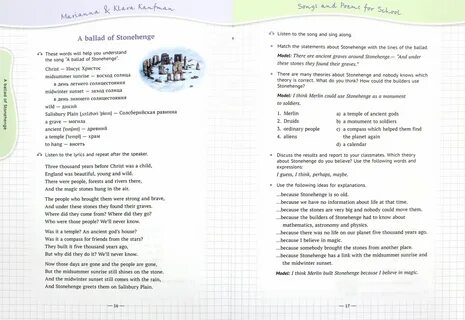 Marianna & Klara Kaufman
A ballad of Stonehenge
These words will help you understand
the song "A ballad of Stonehenge".
Christ — Иисус Христос
midsummer sunrise — восход солнца
в день летнего солнцестояния
midwinter sunset — заход солнца
в день зимнего солнцестояния
wild — дикий
Salisbury Plain — Солсберийская равнина
a grave — могила
ancient — древний
a temple — храм
to hang — висеть
Listen to the lyrics and repeat after the speaker.
Three thousand years before Christ was a child,
England was beautiful, young and wild.
There were people, forests and rivers there,
And the magic stones hung in the air.
The people who brought them were strong and brave,
And under these stones they found their graves.
Where did they come from? Where did they go?
Who were those people? We'll never know.
Was it a temple? An ancient god's house?
Was it a compass for friends from the stars?
They built it five thousand years ago,
But why did they do it? We'll never know.
Now those days are gone and the people are gone,
But the midsummer sunrise still shines on the stone.
And the midwinter sunset still dies on the rock,
And Stonehenge greets them on Salisbury Plain.
— 16 —
A ballad of Stonehenge
Songs and Poems for School
Listen to the song and sing along.
Match the statements about Stonehenge with the lines of the ballad.
Model: There are ancient graves around Stonehenge. — "And under
these stones they found their graves."
There are many theories about Stonehenge and nobody knows which
theory is correct. What do you think? How could the builders use
Stonehenge?
Model: I think Merlin could use Stonehenge as a monument
to soldiers.
1. Merlin a) a temple of ancient gods
2. Druids b) a monument to soldiers
3. ordinary people c) a compass which helped them find
4. aliens the planet again
d) a calendar
Discuss the results and report to your classmates. Which theory
about Stonehenge do you believe? Use the following words and
expressions:
I guess, I think, perhaps, maybe.
Use the following ideas for explanations.
...because Stonehenge is so old.
...because we have no information about life at that time.
...because the stones are very big and nobody could move them.
...because the builders of Stonehenge had to know about
mathematics, astronomy and physics.
...because there was no life on our planet five thousand years ago.
...because I believe in magic.
...because somebody brought the stones from another place.
...because Stonehenge has a link with the midsummer sunrise and
the midwinter sunset.
Model: I think Merlin built Stonehenge because I believe in magic.
— 17 —